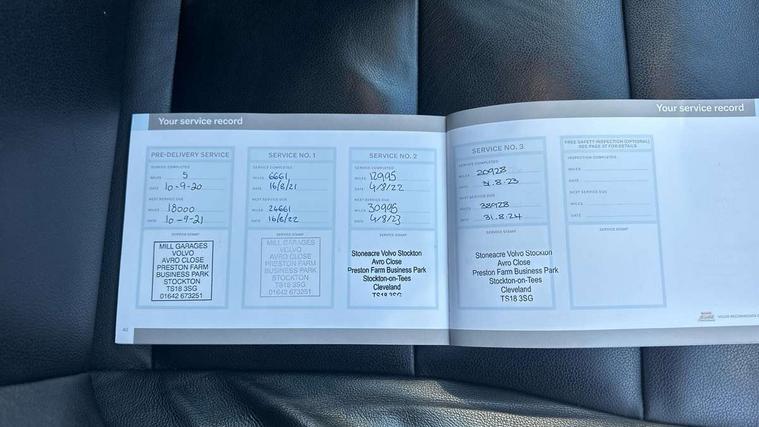 Your service record
PRE-DELIVERY SERVICE
SERVICE COMPLETED
MILES 5
DATE 10-9-20
NEXT SERVICE DUE
MILES 18000
DATE 10-9-21
SERVICE STAMP
MILL GARAGES
VOLVO
AVRO CLOSE
PRESTON FARM
BUSINESS PARK
STOCKTON
TS18 3SG
01642 673251
40
SERVICE NO. 1
SERVICE COMPLETED
MILES 6661
DATE 16/8/21
NEXT SERVICE DUE
MILES 24661
DATE 16/8/22
SERVICE STAMP
MILL GARAGES
VOLVO
AVRO CLOSE
PRESTON FARM
BUSINESS PARK
STOCKTON
TS18 3SG
01642 673251
SERVICE NO. 2
SERVICE COMPLETED
MILES 12995
DATE 4/8/22
NEXT SERVICE DUE
MILES 30995
DATE 4/8/23
SERVICE STAMP
Stoneacre Volvo Stockton
Avro Close
Preston Farm Business Park
Stockton-on-Tees
Cleveland
TS18 3SG
Your service record
SERVICE NO. 3
SERVICE COMPLETED
MILES 20928
DATE 31.8.23
NEXT SERVICE DUE
MILES 38928
DATE 31.8.24
SERVICE STAMP
Stoneacre Volvo Stockton
Avro Close
Preston Farm Business Park
Stockton-on-Tees
Cleveland
TS18 3SG
FREE SAFETY INSPECTION (OPTIONAL)
SEE PAGE 37 FOR DETAILS
INSPECTION COMPLETED
MILES
DATE
NEXT SERVICE DUE
MILES
DATE
SERVICE STAMP
VOLVO RECOMMENDS